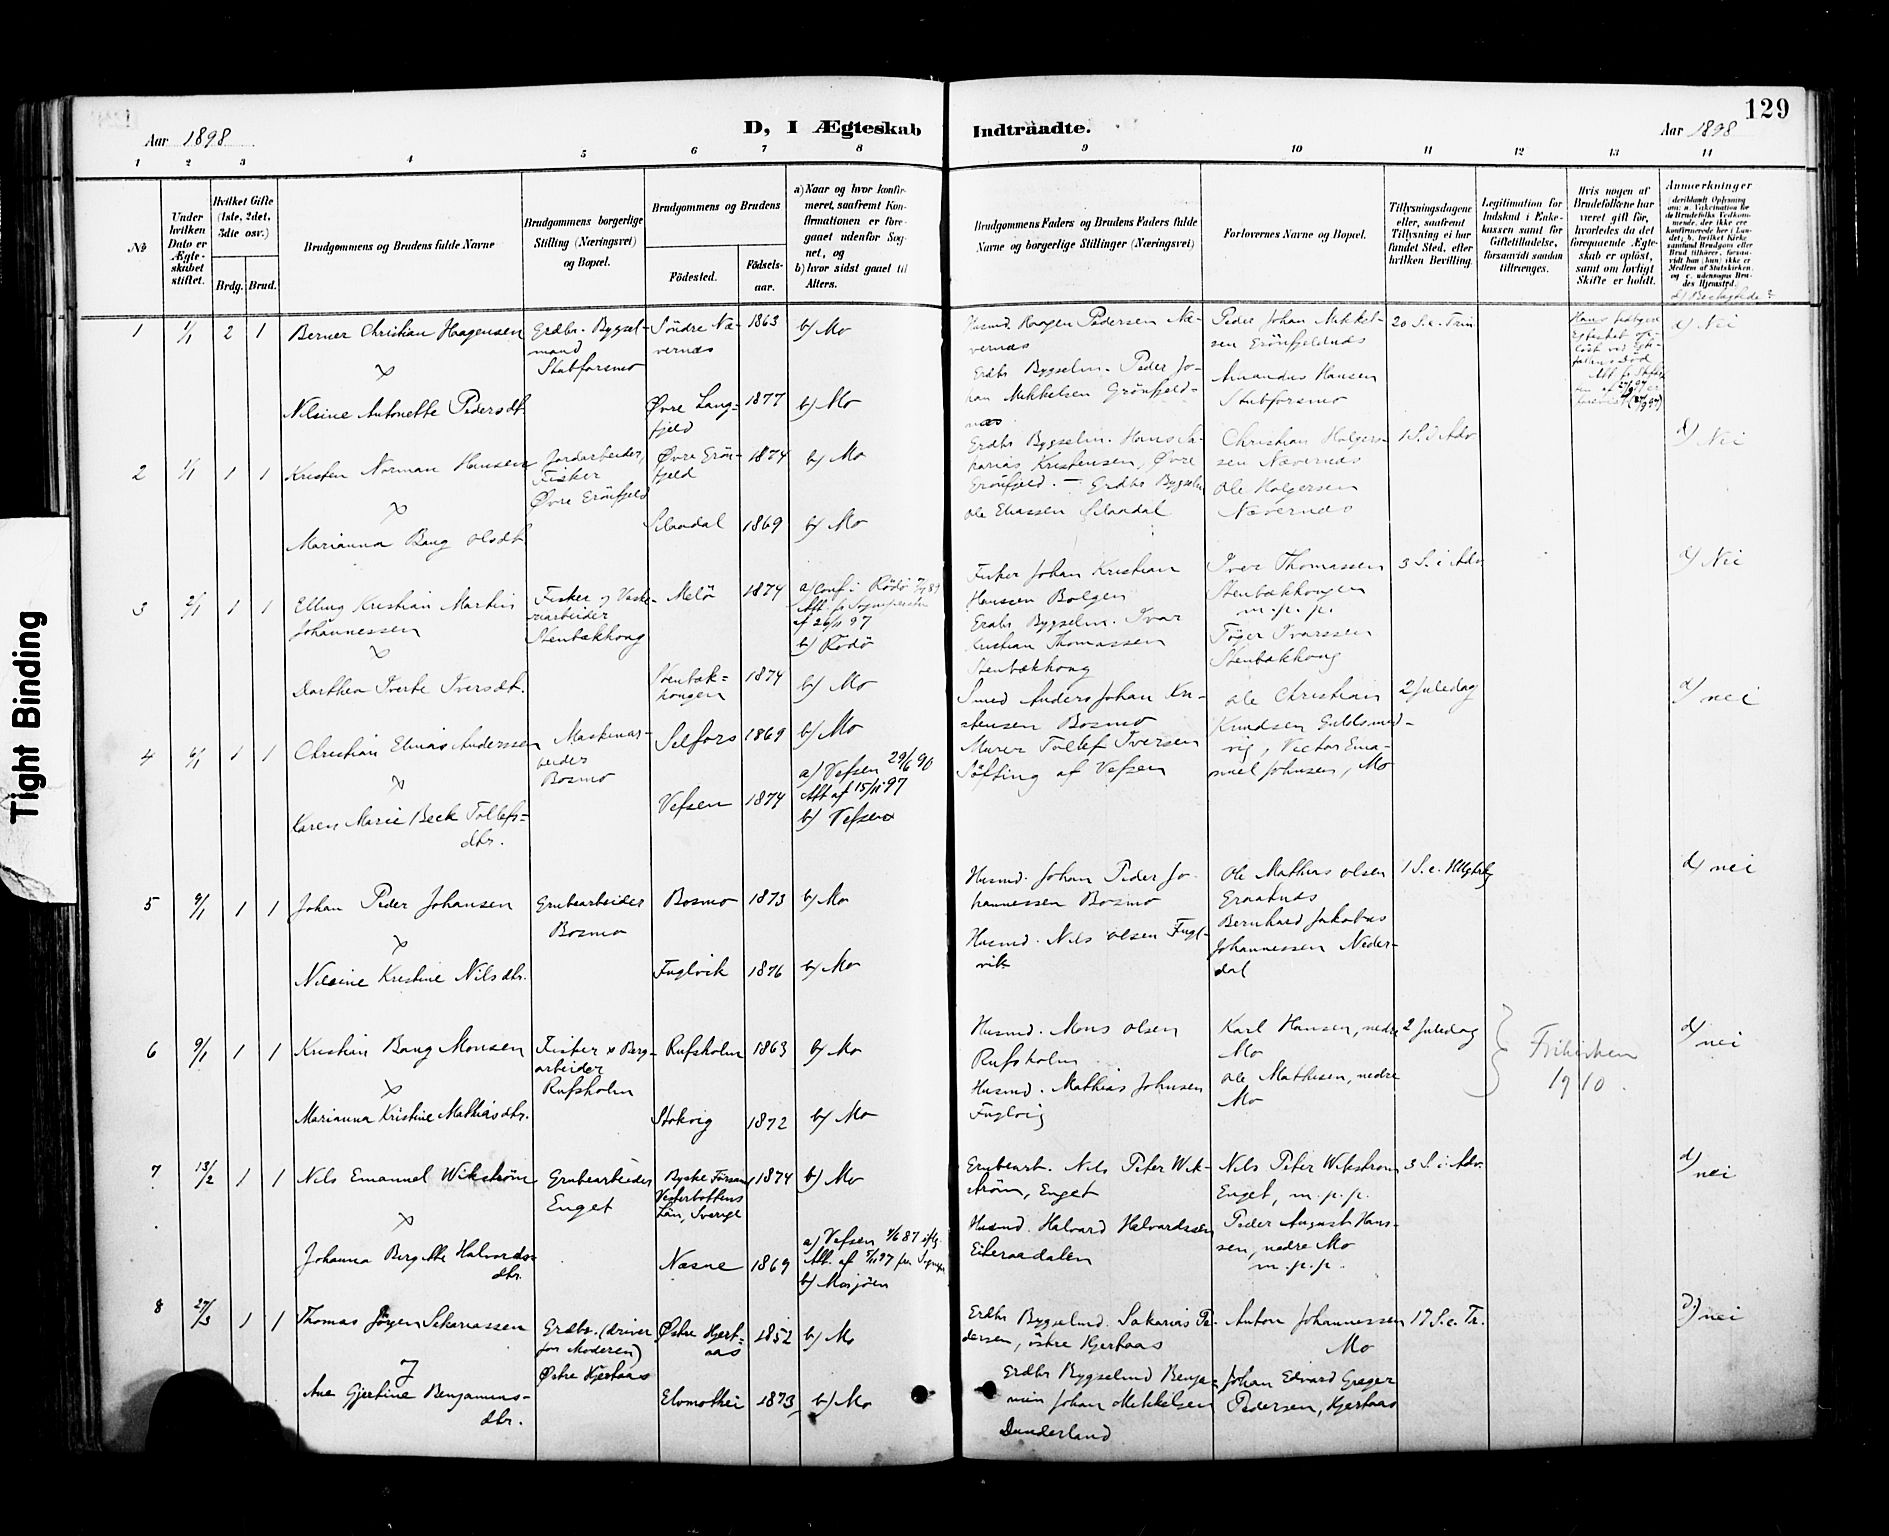 Tight Binding
129
Aar 1898
D, I Ægteskab Indtraadte.
Aar 1898
1 2 3 4 5 6 7 8 9 10 11 12 13 14
No
Under hvilken Dato er Ægteskabet stiftet.
Hvilket Gifte (1ste, 2det, 3die osv.)
Brdg. Brud.
Brudgommens og Brudens fulde Navne
Brudgommens borgerlige Stilling (Næringsvei) og Bopæl.
Brudgommens og Brudens
Födested.
Födselsaar.
a) Naar og hvor konfirmeret, saafremt Konfirmationen er foregaaet udenfor Sognet, og
b) hvor sidst gaaet til Alters.
Brudgommens Faders og Brudens Faders fulde Navne og borgerlige Stillinger (Næringsvei)
Forlovernes Navne og Bopæl.
Tillysningsdagene eller, saafremt Tillysning ei har fundet Sted, efter hvilken Bevilling.
Legitimation for Indskud i Enkekassen samt for Giftetilladelse, forsaavidt saadan tiltrænges.
Hvis nogen af Brudefolkene har været gift för, hvorledes da det foregaaende Ægteskab er oplöst, samt om lovligt Skifte er holdt.
Anmærkninger
1 1/1 2 1 Berner Christian Hagensen
Grdbr. Bygselmand
Stabforsmo
Söndre Nævernes 1863 b) Mo
Husmd. Haagen Pedersen Nævernes
Peder Johan Mikkelsen Grönfjeldnæs
20 S. e. Trin
d) Nei
Nilsine Antonette Pedersdt.
Øvre Langfjeld 1877 b) Mo
Grdbr. Bygselm. Peder Johan Mikkelsen Grönfjeldnæs
Amandus Hansen Stabforsmo
2 1/1 1 1 Kristen Norman Hansen
Jordarbeider, Fisker
Øvre Grönfjeld
Øvre Grönfjeld 1874 b) Mo
Grdbr. Bygselm. Hans Zakarias Kristensen, Øvre Grönfjeld. – Grdbr. Bygselm Ole Eliassen
Christian Holgersen Nævernes
Ole Holgersen Nævernes
1 S. i Adv
d) Nei
Marianna Bang Olsdt.
1869 b) Mo
3 2/1 1 1 Elling Kristian Martin Johannessen
Fisker
Stenbækhaug
Melö 1874 a) Conf. Rödö
b) Rödö
Fisker Johan Kristian Hanssen Bolgen
Iver Thomassen Stenbækhougen
m.p.p.
3 S. i Adv
d) Nei
Dorthea Iversdt.
Stenbækhougen 1874 b) Mo
Grdbr. Bygselm. Ivar Kristian Thomassen Stenbækhaug
Töger Ivarssen Stenbækhaug
4 6/1 1 1 Christian Elinas Anderssen
Maskinarbeider
Bosmo
Selfors 1869 b) Mo
Smed Anders Johan Kristensen Bosmo
Ole Christian Knudsen Guldsmedvig, Victor Emanuel Johnsen, Mo
2 Juledag
d) nei
Karen Marie Beck Tollefsdtr.
Vefsen 1874 a) Vefsen 29/6 90
Att af 15/11 97
b) Vefsen
Murer Tollef Iversen Söfting af Vefsen
5 9/1 1 1 Johan Peder Johansen
Grubearbeider
Bosmo
Bosmo 1873 b) Mo
Husmd. Johan Peder Johannessen Bosmo
Ole Mathias Olsen Graatnæs
1 S. e. Hllgtrkg
d) nei
Nilsine Kristine Nilsdtr.
Fuglvik 1876 b) Mo
Husmd. Nils Olsen Fuglvik
Bernhard Jakobus Johannessen Nederdal
6 9/1 1 1 Kristian Bang Monsen
Fisker & Bergarbeider
Rufsholm
Rufsholm 1863 b) Mo
Husmd. Mons Olsen Rufsholm
Karl Hansen, nedre Mo
2 Juledag
Frikirken 1910.
d) nei
Marianna Kristine Mathiasdtr.
Stokvig 1872 b) Mo
Husmd. Mathias Johnsen Fuglvig
Ole Mathisen, nedre Mo
7 13/2 1 1 Nils Emanuel Wikström
Grubearbeider
Enget
Byske Försam, Vesterbottens Län, Sverige 1874 b) Mo
Grubearb. Nils Peter Wikström, Enget
Nils Peter Wikström Enget, m.p.p.
3 S. i Adv.
d) nei
Johanna Bergitte Halvordsdtr.
Næsne 1869 a) Vefsen
b) Mosjöen
Husmd. Halvard Halvardssen Eiteraadalen
Peder August Hanssen, nedre Mo
m.p.p.
8 27/3 1 1 Thomas Jörgen Sakariassen
Grdbr. (driver for Moderen)
Østre Hjertaas
Østre Hjertaas 1852 b) Mo
Grdbr Bygselmd. Sakarias Pedersen, östre Hjertaas
Anton Johannessen Mo
17 S. e. Tr.
d) nei
Ane Gjertine Benjaminsdtr.
1873 b) Mo
Grdbr Bygselmd Benjamin Johan Mikkelsen Dunderland
Johan Edvard Greger Pedersen, Hjertaas